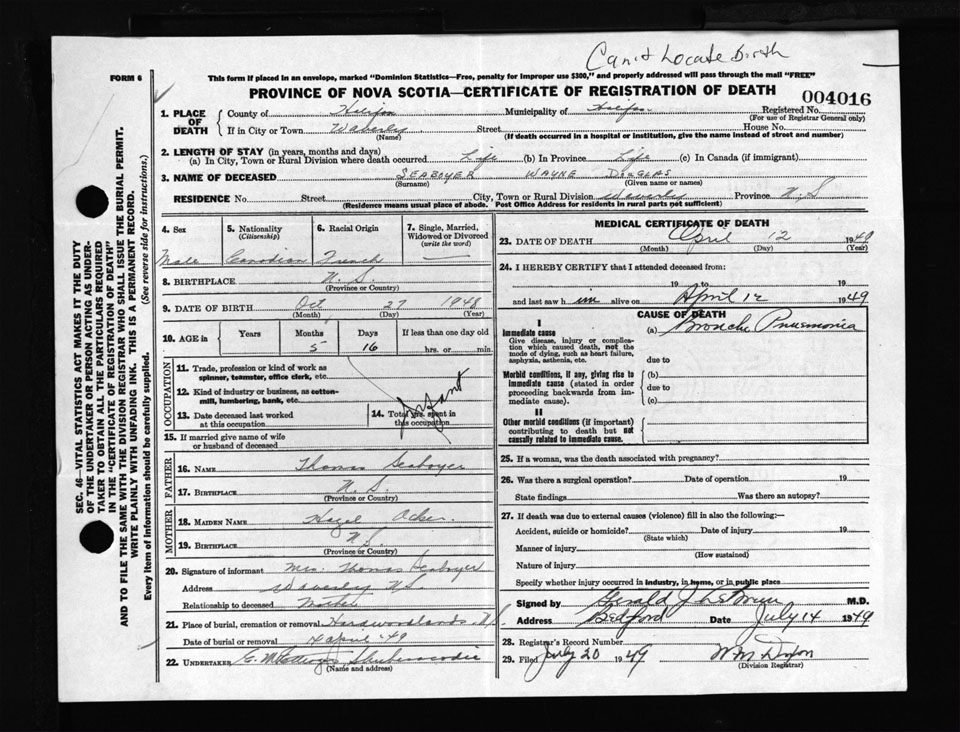 Can't Locate Birth
FORM 6
This form if placed in an envelope, marked "Dominion Statistics—Free, penalty for improper use $300," and properly addressed will pass through the mail "FREE"
PROVINCE OF NOVA SCOTIA—CERTIFICATE OF REGISTRATION OF DEATH
004016
SEC. 46—VITAL STATISTICS ACT MAKES IT THE DUTY
OF THE UNDERTAKER OR PERSON ACTING AS UNDER-
TAKER TO OBTAIN ALL THE PARTICULARS REQUIRED
IN THE "CERTIFICATE OF REGISTRATION OF DEATH"
AND TO FILE THE SAME WITH THE DIVISION REGISTRAR WHO SHALL ISSUE THE BURIAL PERMIT.
WRITE PLAINLY WITH UNFADING INK. THIS IS A PERMANENT RECORD.
Every item of information should be carefully supplied. (See reverse side for instructions.)
1. PLACE OF DEATH
County of Halifax Municipality of Halifax Registered No.
(For use of Registrar General only)
If in City or Town Waverly Street House No.
(Name) (If death occurred in a hospital or institution, give the name instead of street and number)
2. LENGTH OF STAY (in years, months and days)
(a) In City, Town or Rural Division where death occurred Life (b) In Province Life (c) In Canada (if immigrant)
3. NAME OF DECEASED SEABOYER WAYNE DOUGLAS
(Surname) (Given name or names)
RESIDENCE No. Street City, Town or Rural Division Waverly Province N.S
(Residence means usual place of abode. Post Office Address for residents in rural parts not sufficient)
4. Sex
Male
5. Nationality
(Citizenship)
Canadian
6. Racial Origin
French
7. Single, Married,
Widowed or Divorced
(write the word)
8. BIRTHPLACE N.S.
(Province or Country)
9. DATE OF BIRTH Oct 27 1948
(Month) (Day) (Year)
10. AGE in
Years Months Days If less than one day old
5 16 hrs. or min.
OCCUPATION
11. Trade, profession or kind of work as
spinner, teamster, office clerk, etc.
12. Kind of industry or business, as cotton-
mill, lumbering, bank, etc.
Infant
13. Date deceased last worked
at this occupation
14. Total yrs. spent in
this occupation
15. If married give name of wife
or husband of deceased
FATHER
16. NAME Thomas Seaboyer
17. BIRTHPLACE N.S.
(Province or Country)
MOTHER
18. MAIDEN NAME Hazel Ocker
19. BIRTHPLACE N.S.
(Province or Country)
20. Signature of informant Mrs. Thomas Seaboyer
Address Waverly N.S
Relationship to deceased Mother
21. Place of burial, cremation or removal Hardwoodlands N.S.
Date of burial or removal April '49
22. UNDERTAKER Shubenacadie
(Name and address)
MEDICAL CERTIFICATE OF DEATH
23. DATE OF DEATH April 12 1949
(Month) (Day) (Year)
24. I HEREBY CERTIFY that I attended deceased from:
19 to 19
and last saw him alive on April 12 1949
CAUSE OF DEATH
I
Immediate cause
Give disease, injury or complica-
tion which caused death, not the
mode of dying, such as heart failure,
asphyxia, asthenia, etc.
(a) Broncho Pneumonia
due to
Morbid conditions, if any, giving rise to
immediate cause (stated in order
proceeding backwards from im-
mediate cause).
(b)
due to
(c)
II
Other morbid conditions (if important)
contributing to death but not
causally related to immediate cause.
25. If a woman, was the death associated with pregnancy?
26. Was there a surgical operation? Date of operation 19
State findings Was there an autopsy?
27. If death was due to external causes (violence) fill in also the following:—
Accident, suicide or homicide? Date of injury 19
(State which)
Manner of injury
(How sustained)
Nature of injury
Specify whether injury occurred in industry, in home, or in public place
Signed by Gerald J LeBrun M.D.
Address Bedford Date July 14 1949
28. Registrar's Record Number
29. Filed July 20 1949 W M Dixon
(Division Registrar)